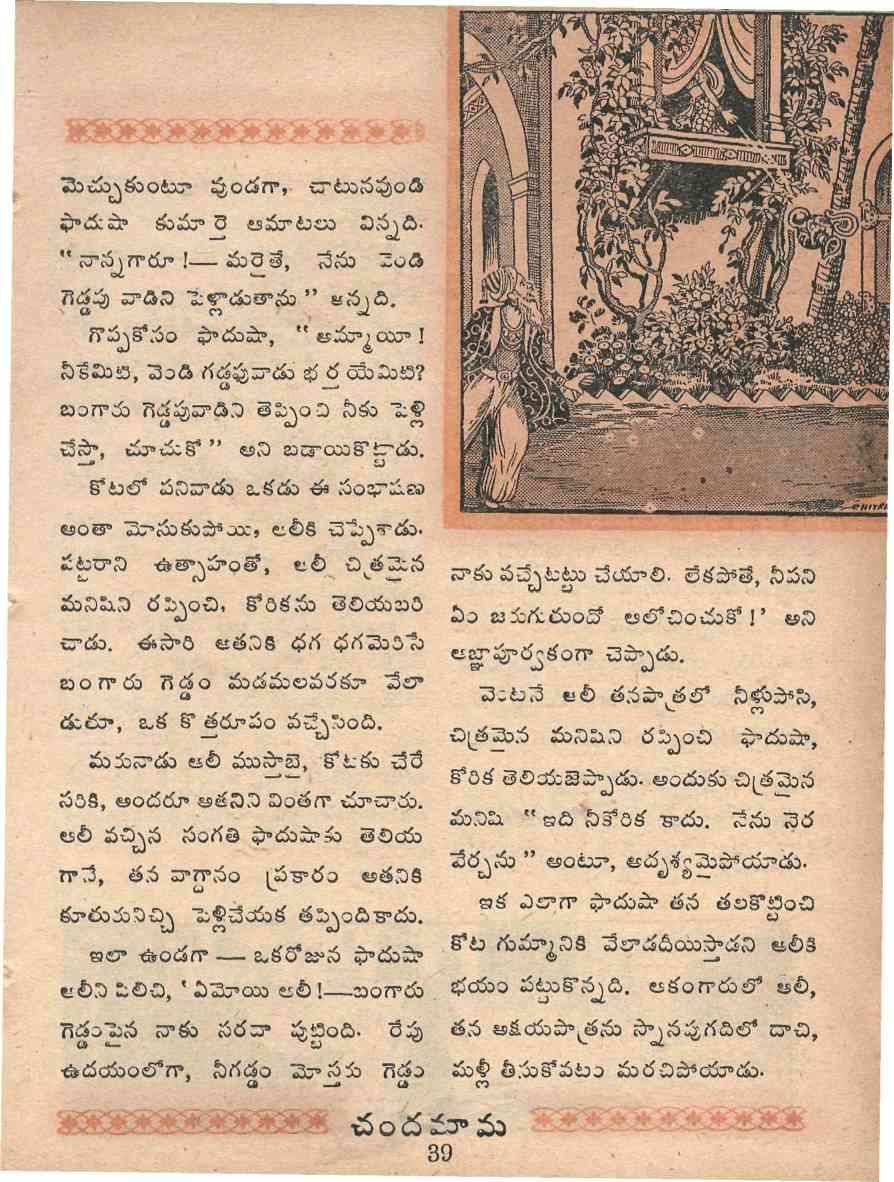 మెచ్చుకుంటూ వుండగా, చాటునవుండి
ఫాదుషా కుమార్తె ఆమాటలు విన్నది.
“నాన్నగారూ !— మరైతే, నేను వెండి
గెడ్డపు వాడిని పెళ్లాడుతాను” అన్నది.
గొప్పకోసం ఫాదుషా, “అమ్మాయీ !
నీకేమిటి, వెండి గడ్డపువాడు భర్తయేమిటి?
బంగారు గెడ్డపువాడిని తెప్పించి నీకు పెళ్లి
చేస్తా, చూచుకో” అని బడాయికొట్టాడు.
కోటలో పనివాడు ఒకడు ఈ సంభాషణ
అంతా మోసుకుపోయి, ఆలీకి చెప్పేశాడు.
పట్టరాని ఉత్సాహంతో, ఆలీ చిత్రమైన
మనిషిని రప్పించి, కోరికను తెలియబరి
చాడు. ఈసారి ఆతనికి ధగ ధగమెరిసే
బంగారు గెడ్డం మడమలవరకూ వేలా
డుతూ, ఒక కొత్తరూపం వచ్చేసింది.
మరునాడు ఆలీ ముస్తాబై, కోటకు చేరే
సరికి, అందరూ అతనిని వింతగా చూచారు.
ఆలీ వచ్చిన సంగతి ఫాదుషాకు తెలియ
గానే, తన వాగ్దానం ప్రకారం అతనికి
కూతురునిచ్చి పెళ్లిచేయక తప్పిందికాదు.
ఇలా ఉండగా — ఒకరోజున ఫాదుషా
ఆలీని పిలిచి, ‘ఏమోయి ఆలీ!—బంగారు
గెడ్డంపైన నాకు సరదా పుట్టింది. రేపు
ఉదయంలోగా, నీగడ్డం మోస్తరు గెడ్డం
నాకు వచ్చేటట్టు చేయాలి. లేకపోతే, నీపని
ఏం జరుగుతుందో ఆలోచించుకో!’ అని
ఆజ్ఞాపూర్వకంగా చెప్పాడు.
వెంటనే ఆలీ తనపాత్రలో నీళ్లుపోసి,
చిత్రమైన మనిషిని రప్పించి ఫాదుషా,
కోరిక తెలియజెప్పాడు. అందుకు చిత్రమైన
మనిషి “ఇది నీకోరిక కాదు. నేను నెర
వేర్చను” అంటూ, అదృశ్యమైపోయాడు.
ఇక ఎలాగా ఫాదుషా తన తలకొట్టించి
కోట గుమ్మానికి వేలాడదీయిస్తాడని ఆలీకి
భయం పట్టుకొన్నది. ఆకంగారులో ఆలీ,
తన అక్షయపాత్రను స్నానపుగదిలో దాచి,
మళ్లీ తీసుకోవటం మరచిపోయాడు.
చందమామ
39